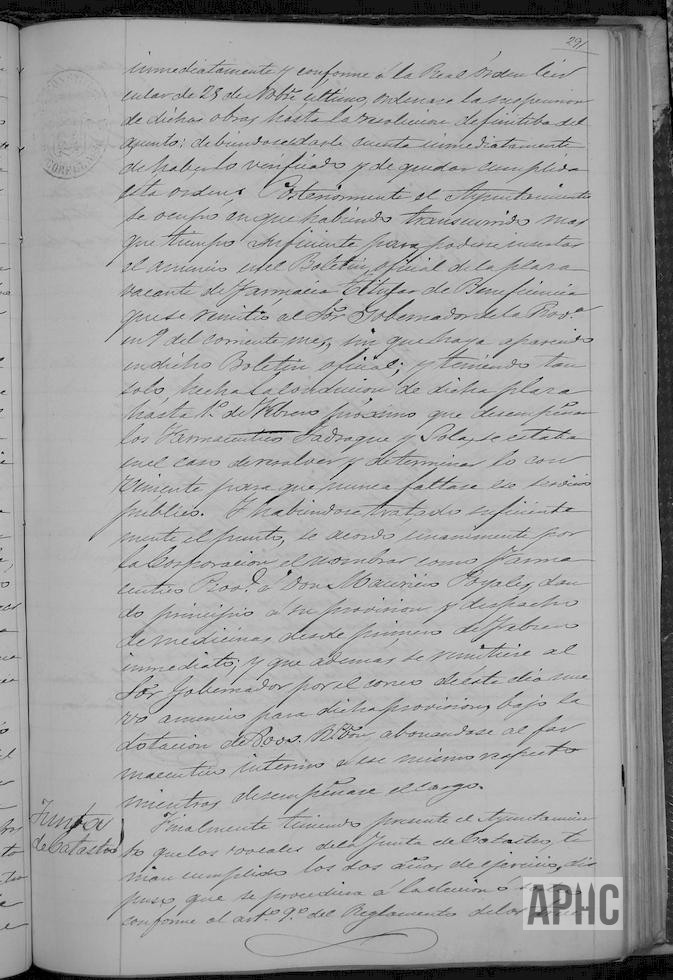 291
inmediatamente y conforme á la Real órden cir
cular de 28 de Nobre último, ordenase la suspension
de dichas obras hasta la resolucion definitiba del
asunto: debiendosedarle cuenta inmediatamente
de haberlo verificado y de quedar cumplida
esta orden. Posteriormente el Ayuntamiento
se ocupó en que habiendo transcurrido mas
que tiempo suficiente para poderse insertar
el anuncio en el Boletin oficial de la plaza
vacante de Farmacia Titular de Beneficencia
que se remitió al Sor Gobernador de la Prova
en 9 del corriente mes, sin que haya aparecido
en dicho Boletin oficial; y teniendo tan
solo hecha la
de dicha plaza
hasta 1o de Febrero próximo que desempeñan
los Farmaceuticos Jadraque y Sola, se estaba
en el caso de resolver y determinar lo con
veniente para que nunca faltase el servicio
público. Y habiendose tratado suficiente
mente el punto, se acordó unanimente por
la Corporacion el nombrar como Farma
ceutico Provl á Don Mauricio Poyales, dan
do principio a su provision y despacho
de medicinas desde primero de Febrero
inmediato; y que ademas se remitiese al
Sor Gobernador por el correo de este dia nue
vo anuncio para dicha provision, bajo la
dotacion de
Rs Von, abonandose al far
maceutico interino á ese mismo respecto
mientras desempeñase el cargo.
Junta
de Catastro
Finalmente teniendo presente el Ayuntamien
to que los vocales de la Junta de Catastro, te
nian cumplido los dos años de ejercicio, dis
puso que se procediera á la eleccion
conforme al arto 9o del Reglamento de
APHC